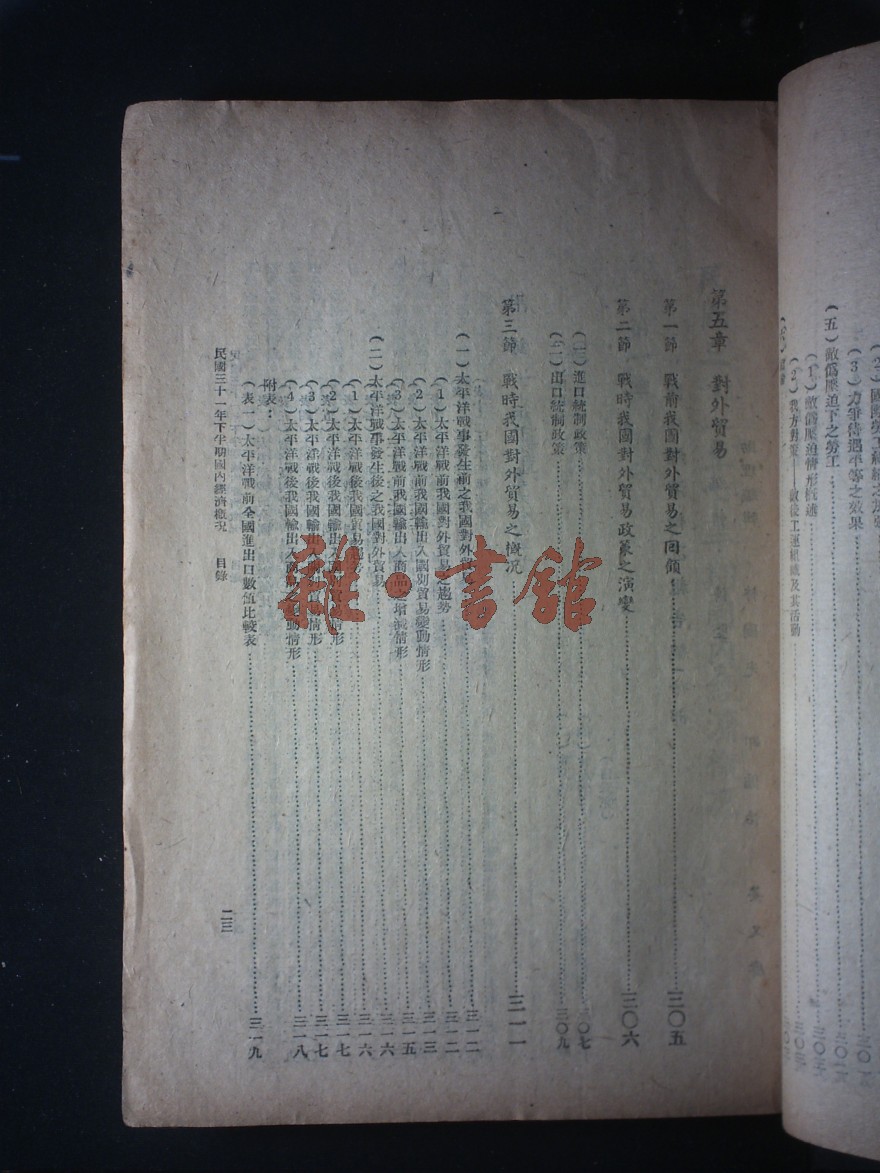 (3)力爭待遇平等之效果
(五)敵僞壓迫下之勞工
(1)敵僞壓迫情形概述
(2)我方對策——敵後工運組織及其活動
第五章 對外貿易
第一節 戰前我國對外貿易之回顧 三〇五
第二節 戰時我國對外貿易政策之演變 三〇六
(一)進口統制政策 三〇七
(二)出口統制政策 三〇九
第三節 戰時我國對外貿易之槪況 三一一
(一)太平洋戰事發生前之我國對外貿易 三一二
(1)太平洋戰前我國對外貿易之趨勢 三一二
(2)太平洋戰前我國輸出入國別貿易變動情形 三一三
(3)太平洋戰前我國輸出入商品之增減情形 三一五
(二)太平洋戰事發生後之我國對外貿易 三一六
(1)太平洋戰後我國貿易趨勢 三一六
(2)太平洋戰後我國輸出入情形 三一七
(3)太平洋戰後我國輸出入情形 三一七
(4)太平洋戰後我國輸出入變動情形 三一八
附表：
(表一)太平洋戰前全國進出口數值比較表 三一九
民國三十一年下半期國內經濟槪況 目錄
二三
雜·書館